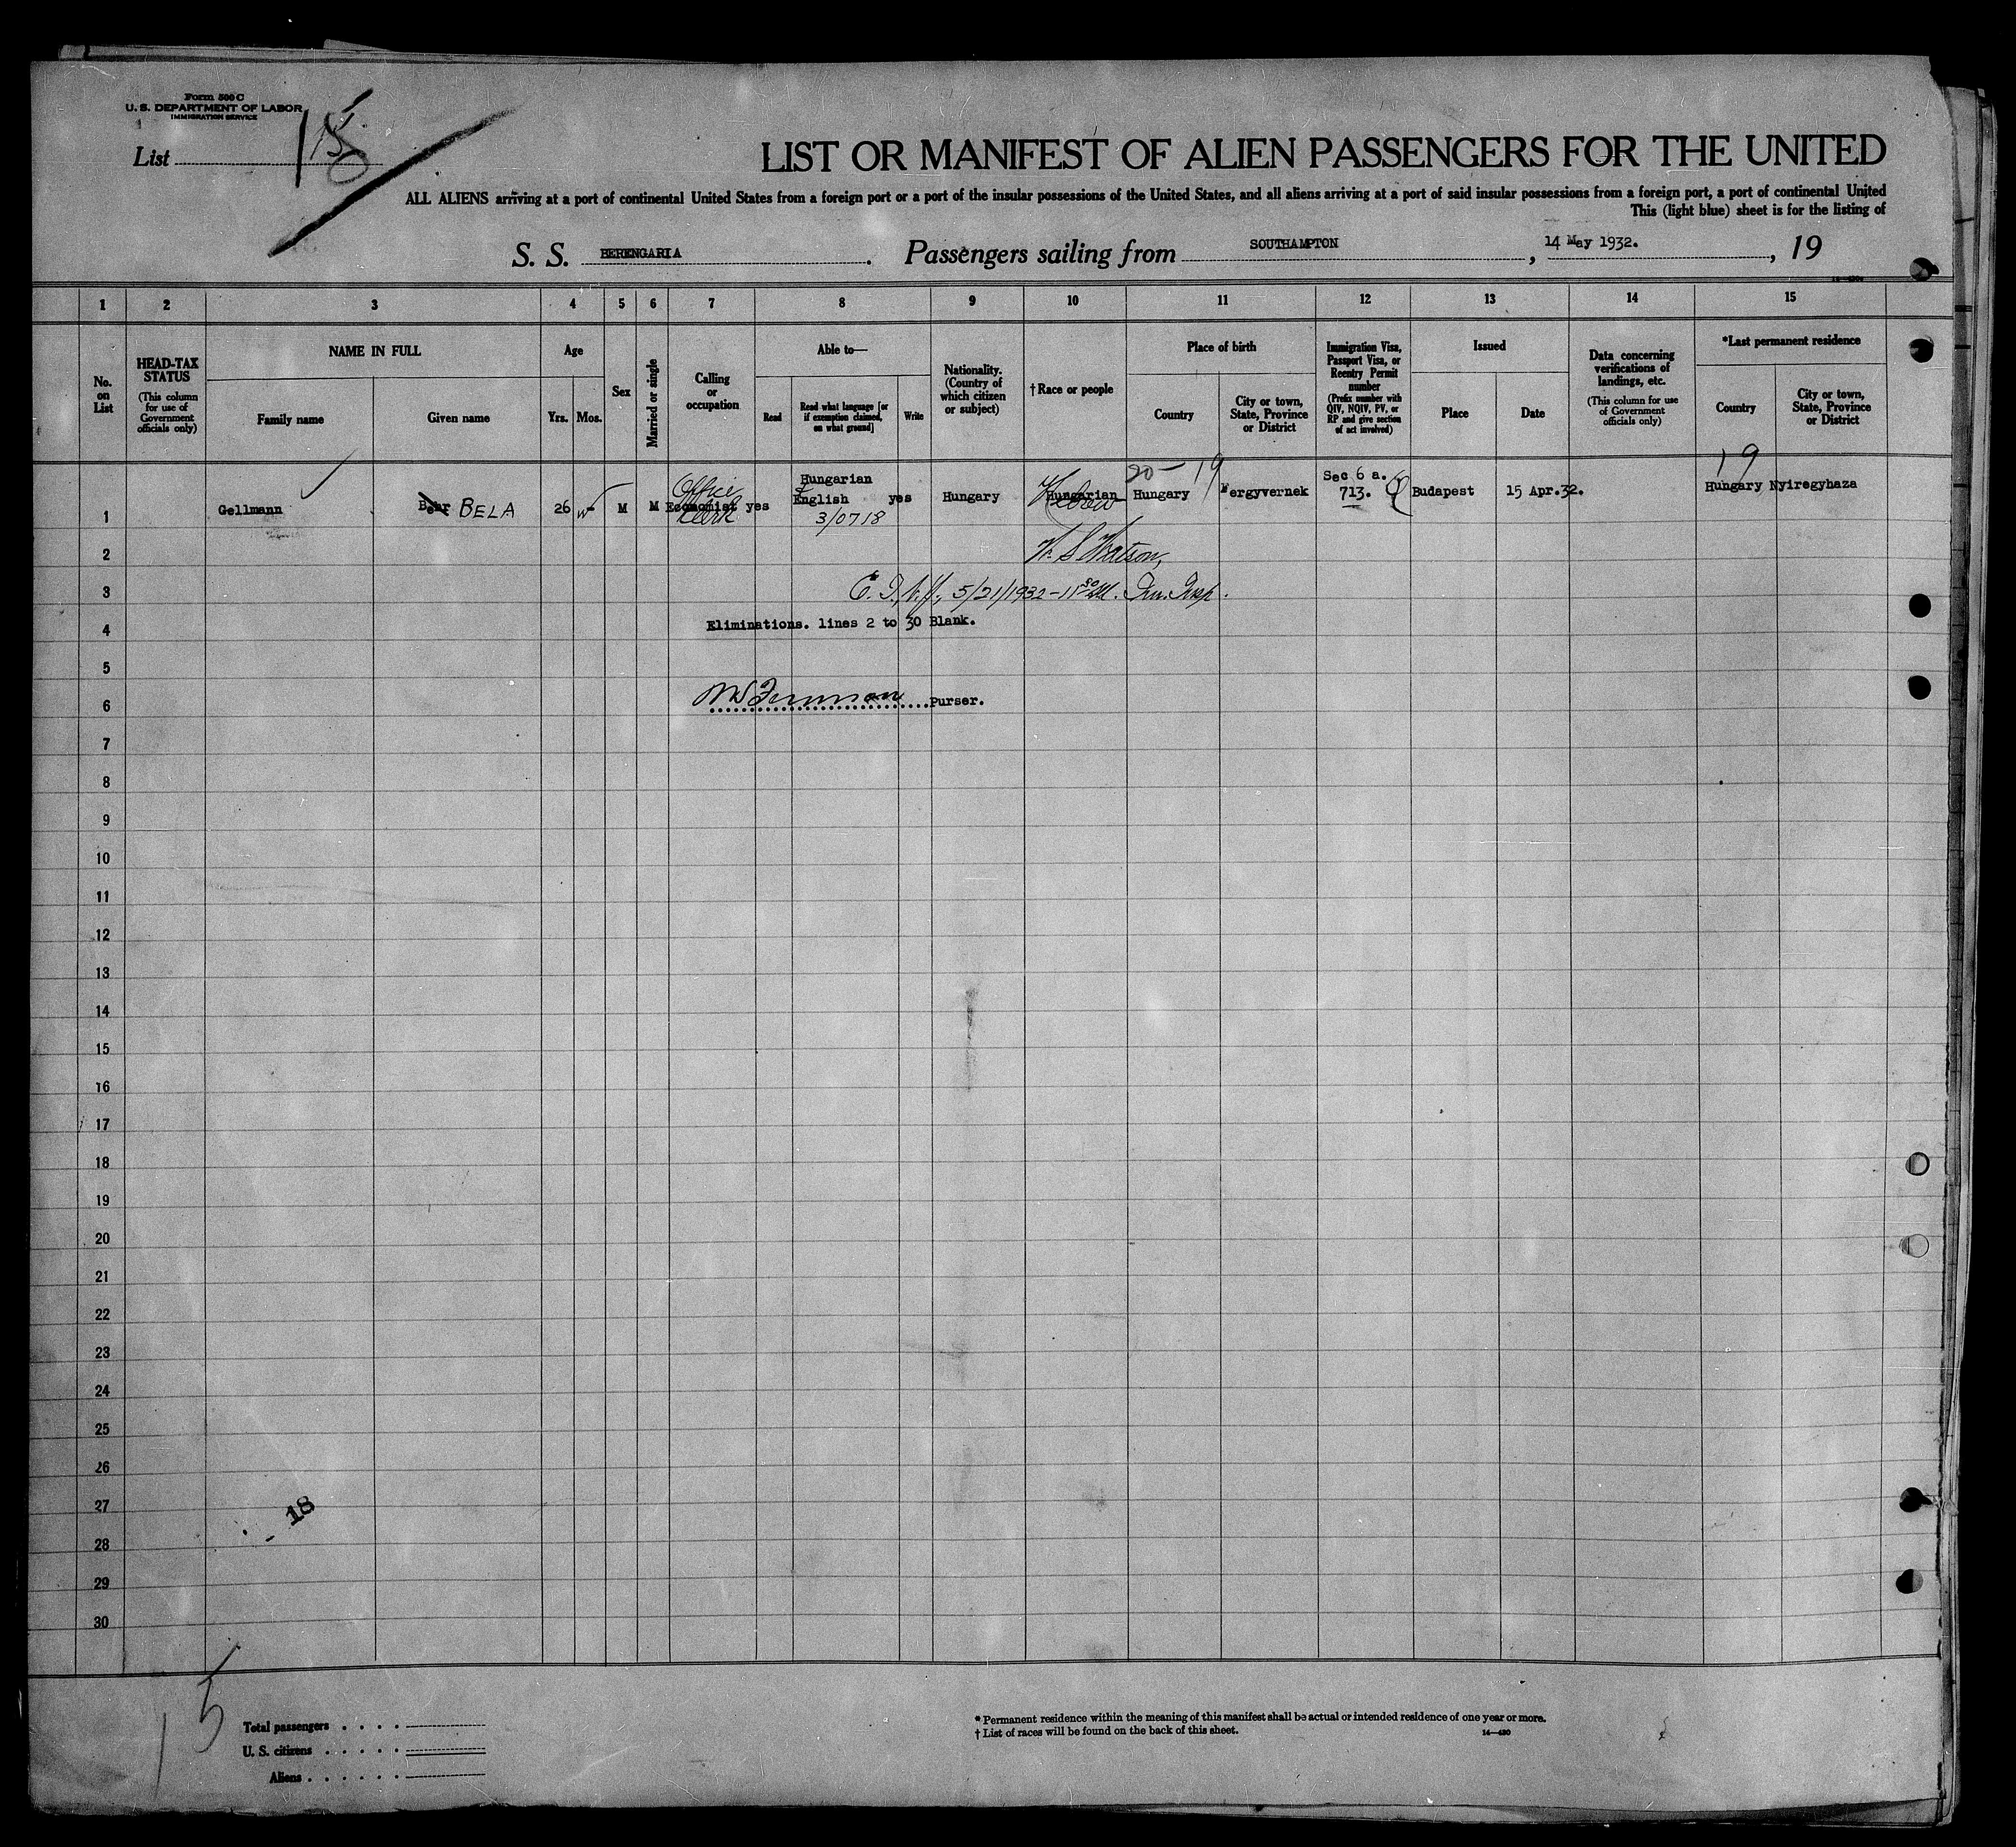 Form 500 C
U. S. DEPARTMENT OF LABOR
IMMIGRATION SERVICE
List
LIST OR MANIFEST OF ALIEN PASSENGERS FOR THE UNITED
ALL ALIENS arriving at a port of continental United States from a foreign port or a port of the insular possessions of the United States, and all aliens arriving at a port of said insular possessions from a foreign port, a port of continental United
This (light blue) sheet is for the listing of
S. S. BERENGARIA. Passengers sailing from SOUTHAMPTON, 14 May 1932., 19
1 2 3 4 5 6 7 8 9 10 11 12 13 14 15
No. on List
HEAD-TAX STATUS
(This column for use of Government officials only)
NAME IN FULL
Family name
Given name
Age
Yrs. Mos.
Sex
Married or single
Calling or occupation
Able to—
Read
Read what language [or if exemption claimed, on what ground]
Write
Nationality. (Country of which citizen or subject)
† Race or people
Place of birth
Country
City or town, State, Province or District
Immigration Visa, Passport Visa, or Reentry Permit number
(Prefix number with QIV, NQIV, PV, or RP and give section of act involved)
Issued
Place
Date
Data concerning verifications of landings, etc.
(This column for use of Government officials only)
*Last permanent residence
Country
City or town, State, Province or District
20 – 19
19
Office Hungarian Sec 6 a.
1 Gellmann BELA 26 M M Economist yes English yes Hungary Hungarian Hungary Fergyvernek 713. Budapest 15 Apr.32. Hungary Nyiregyhaza
Clerk 3/0718 Hebrew
2 W. S. Watson,
3 5/21/1932 – 11 30 AM. Im. Insp.
4 Eliminations. lines 2 to 30 Blank.
5
6 Purser.
7
8
9
10
11
12
13
14
15
16
17
18
19
20
21
22
23
24
25
26
27
18
28
29
30
15
Total passengers
U. S. citizens
Aliens
* Permanent residence within the meaning of this manifest shall be actual or intended residence of one year or more.
† List of races will be found on the back of this sheet. 14—430